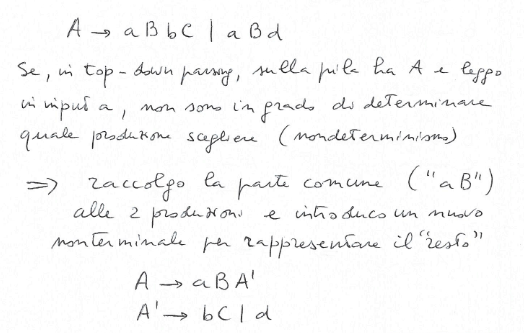 A → a B b C | a B d
Se, in top-down parsing, sulla pila ho A e leggo
in input a, non sono in grado di determinare
quale produzione scegliere (nondeterminismo)
⇒ raccolgo la parte comune ("aB")
alle 2 produzioni e introduco un nuovo
nonterminale per rappresentare il "resto"
A → a B A'
A' → b C | d